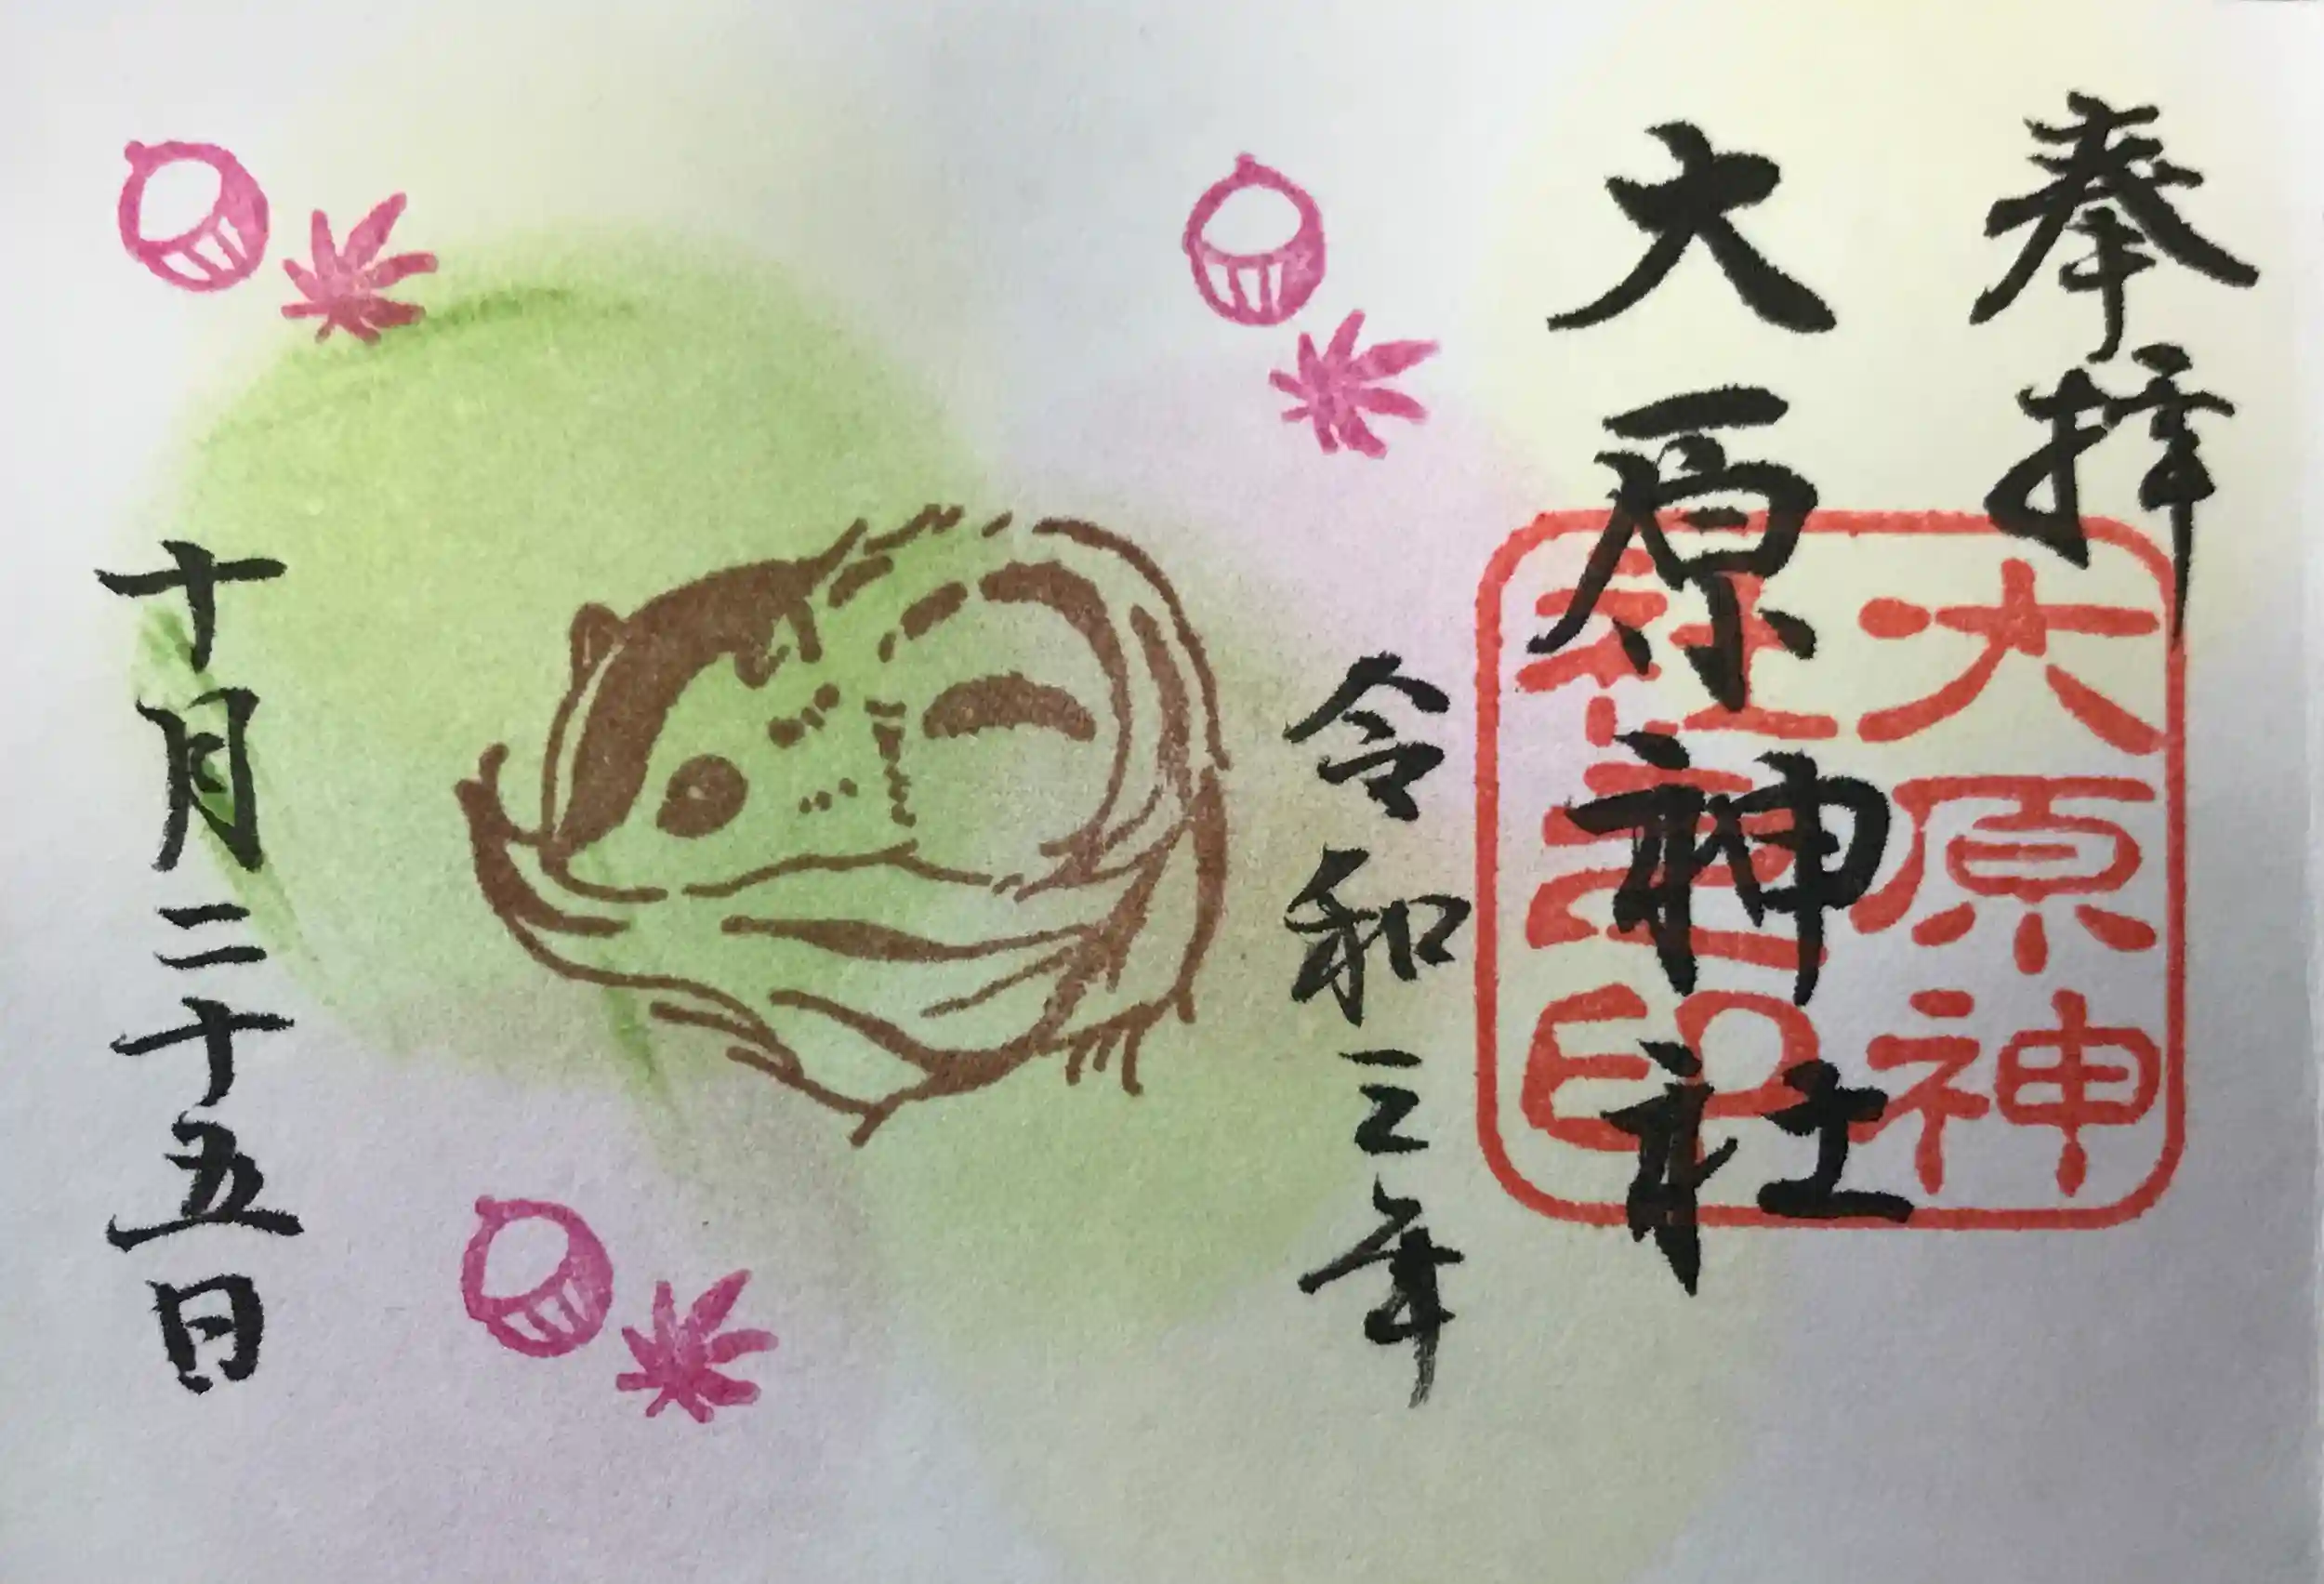 奉拝
大原神社
大原神社之印
令和三年
十月二十五日